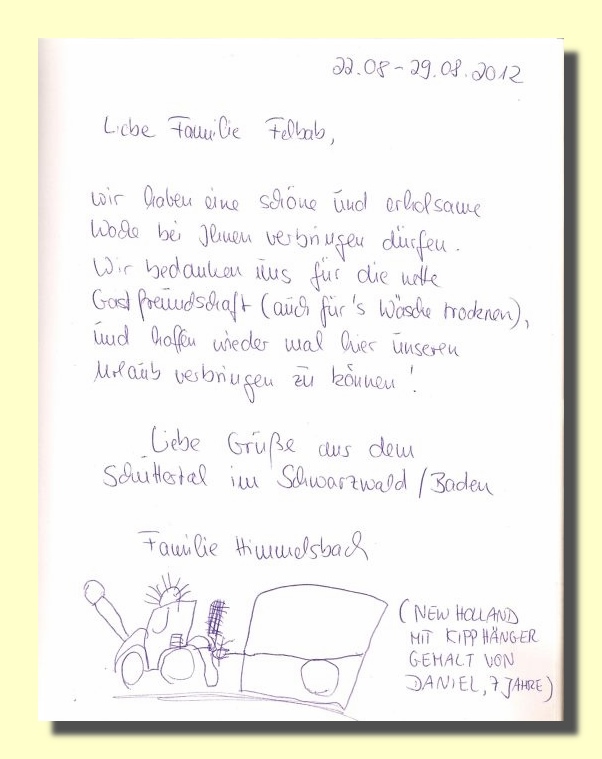 22.08 - 29.08.2012
Liebe Familie Felbab,
wir haben eine schöne und erholsame
Woche bei Ihnen verbringen dürfen.
Wir bedanken uns für die nette
Gastfreundschaft (auch für's Wäsche trocknen),
und hoffen wieder mal hier unseren
Urlaub verbringen zu können!
Liebe Grüße aus dem
Schuttertal im Schwarzwald / Baden
Familie Himmelsbach
(NEW HOLLAND
MIT KIPPHÄNGER
GEMALT VON
DANIEL, 7 JAHRE)